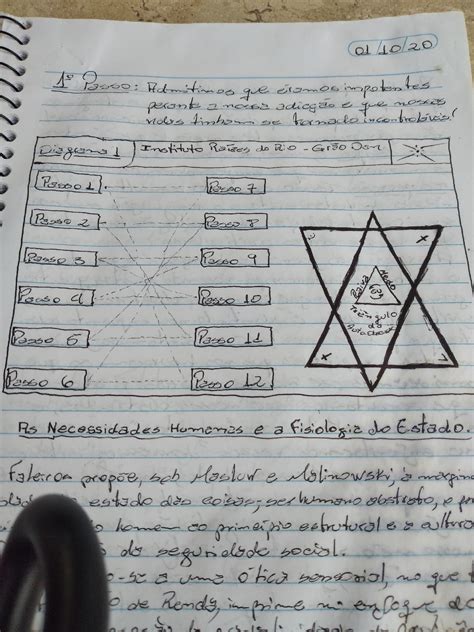 01/10/20
1º Passo: Admitimos que éramos impotentes
perante a nossa adicção e que nossas
vidas tinham se tornado incontroláveis!
Diagrama 1 Instituto Raízes do Rio - Grão Dan
Passo 1 Passo 7
Passo 2 Passo 8
Passo 3 Passo 9
Passo 4 Passo 10
Passo 5 Passo 11
Passo 6 Passo 12
Raiva Medo
Triângulo
da
As Necessidades Humanas e a Fisiologia do Estado.
propõe, sob Maslow e Malinowski, a
estado das coisas; ser humano abstrato, o
homem ao princípio estrutural e a
da seguridade social.
a uma ótica sensorial, no que
de Renda, imprime no enfoque